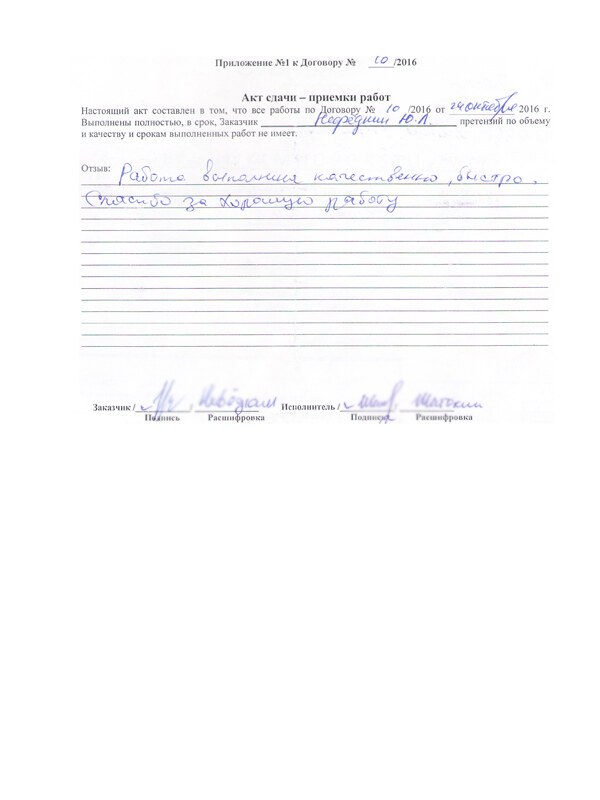 Приложение №1 к Договору № 10/2016
Акт сдачи – приемки работ
Настоящий акт составлен в том, что все работы по Договору № 10 /2016 от 24 октября 2016 г.
Выполнены полностью, в срок, Заказчик Нефёдкин Ю.Л. претензий по объему
и качеству и срокам выполненных работ не имеет.
Отзыв: Работа выполнина качественно, быстро.
Спасибо за хорошую работу
Заказчик / Исполнитель /
Подпись Расшифровка Подпись Расшифровка